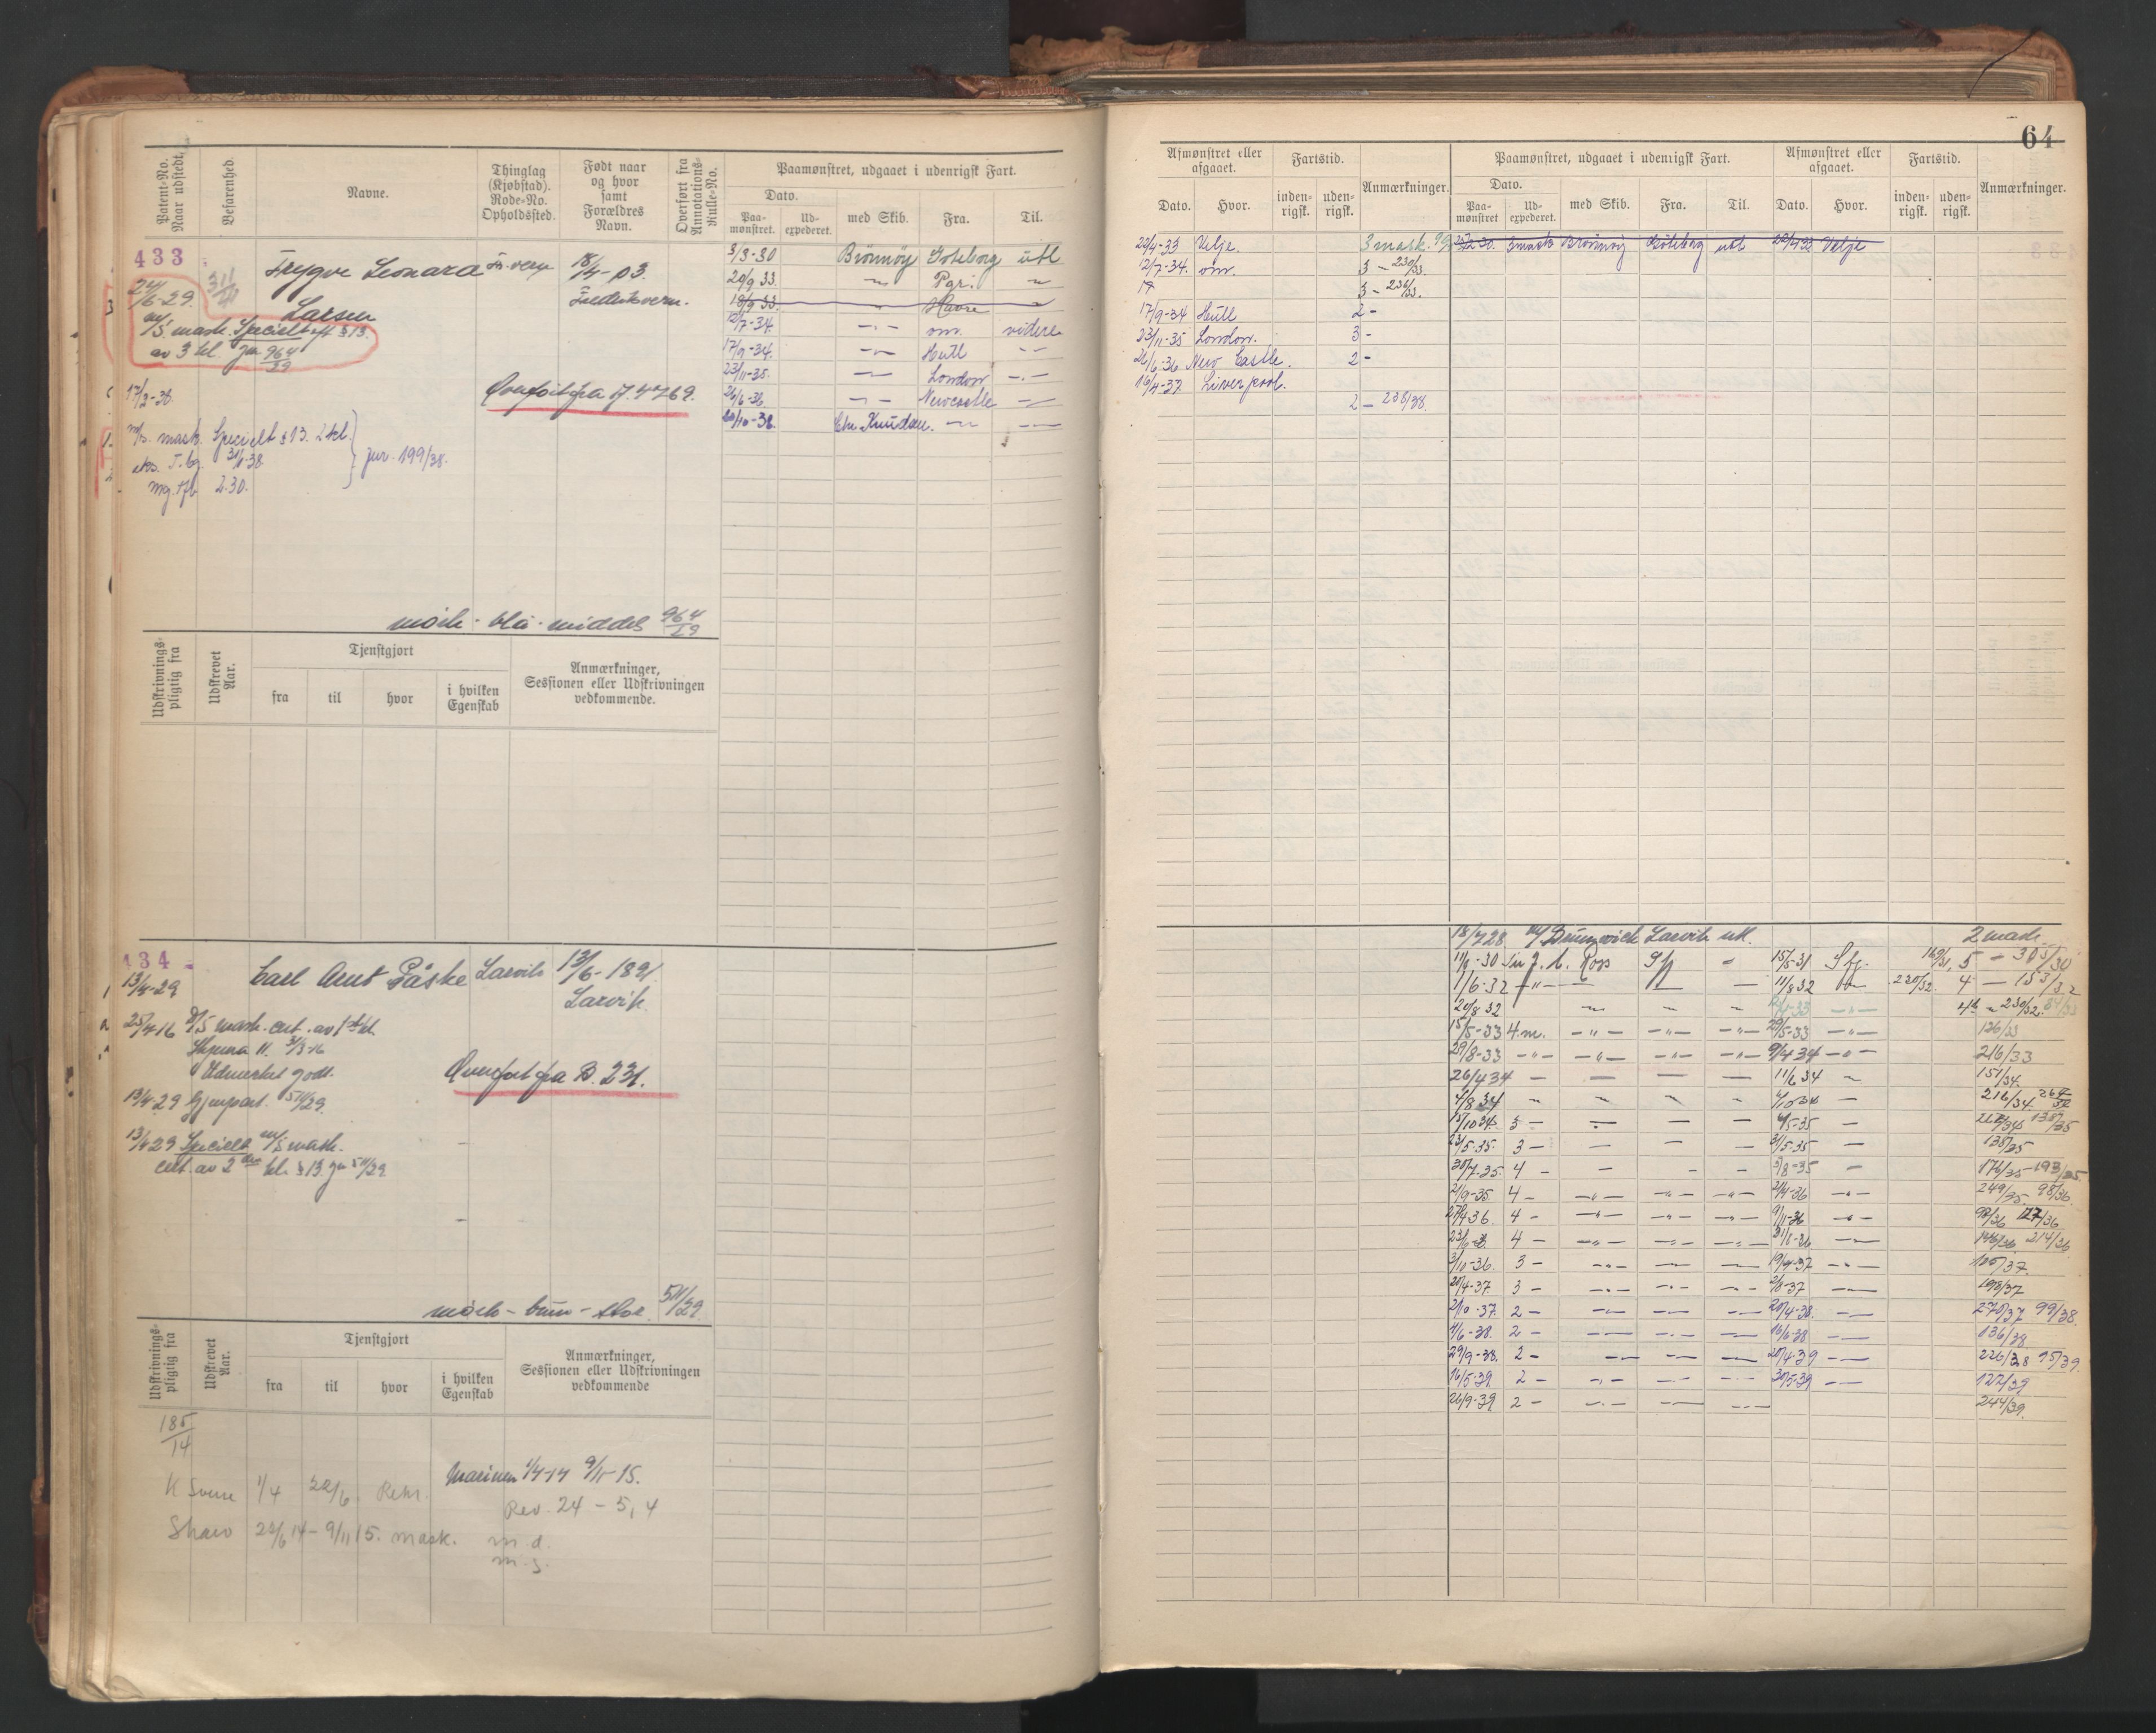 64
Patent-No.
Naar udstedt.
Befarenhed.
Navne.
Thinglag
(Kjøbstad).
Rode-No.
Opholdssted.
Født naar
og hvor
samt
Forældres
Navn.
Overført fra
Annotations-
Rulle-No.
Paamønstret, udgaaet i udenrigsk Fart.
Dato.
Paa-
mønstret.
Ud-
expederet.
med Skib.
Fra.
Til.
433
Trygve Leonard
Larsen
Fr.vern
18/4-03.
Fredriksvern.
24/6-29.
m/s mask. Specielt eft § 13.
av 3 kl. jnr 964/29
17/2-38
Overført fra 17.4769.
m/s. mask. Specielt § 13. 2 kl.
31/1-38
jnr. 199/38.
2.30.
mørk - blå - middels 964/29
3/3-30 Brönnöy Goteborg utl
20/9 33. — Pgr. —
18/9 33. — Havre —
12/7-34. — om. videre
17/9-34. — Hull —
23/11-35. — London —
26/6-36. — Newcastle —
20/10-38. Chr. Knudsen. — —
Udskrivnings-
pligtig fra
Udskrevet
Aar.
Tjenstgjort
fra
til
hvor
i hvilken
Egenskab
Anmærkninger,
Sessionen eller Udskrivningen
vedkommende.
434
Carl Arnt Påske
Larvik
13/6-1891
Larvik
13/4-29
25/4-16 D/S mask. cert. av 1ste kl.
31/3-16
Udmerket godt.
13/4-29 Gjenpart. 511/29.
13/4 29 Specielt m/s mask.
cert. av 2den kl. § 13 jnr 511/29
Overført fra B. 231.
mørk - brun - stor. 511/29
Udskrivnings-
pligtig fra
Udskrevet
Aar.
Tjenstgjort
fra
til
hvor
i hvilken
Egenskab
Anmærkninger,
Sessionen eller Udskrivningen
vedkommende
185/14
Marinen 1/4-14 9/11-15.
K Sverre 1/4 22/6. Rekr.
Rev. 24 - 5, 4
22/6 14 - 9/11 15. mask.
m. d.
m. s.
Afmønstret eller
afgaaet.
Dato.
Hvor.
Fartstid.
inden-
rigsk.
uden-
rigsk.
Anmærkninger.
Paamønstret, udgaaet i udenrigsk Fart.
Dato.
Paa-
mønstret
Ud-
expederet.
med Skib.
Fra.
Til.
Afmønstret eller
afgaaet.
Dato.
Hvor.
Fartstid.
inden-
rigsk.
uden-
rigsk.
Anmærkninger.
22/4-33 Velje. 3 mask. 3 mask Brönnöy Göteborg utl 22/4 33 Velje
12/7-34. om. 3 - 230/33.
3 - 236/33.
17/9-34 Hull 2 -
23/11-35 London. 3 -
26/6-36 New Castle. 2 -
16/4-37 Liverpool.
2 - 236/38.
18/7 28 m/ Brunswick Larvik utl. 2 mask
11/9-30 Sir J. C. Ross 15/5-31 5 - 305/30
1/6-32 — 11/8 32 230/32. 4 - 153/32
20/8 32 — 230/32.
15/5-33 4.m. — 29/5-33 — 126/33
29/8-33 — 9/4 34 — 216/33
26/4 34 — 11/6 34 — 151/34.
4/8 34 — 216/34
15/10 34. 3 — 4/5-35 —
23/5-35. 3 — 31/5-35 — 138/35
30/7-35. 4 — 3/8-35 — 176/35 - 193/35.
21/9-35. 4 — 2/4-36 — 249/35. 98/36
27/4 36. 4 — 9/11-36 — 98/36 127/36
4 — 214/36
3/11-36. 3 — 19/4-37 — 105/37.
20/4-37. 3 — 2/8-37 — 198/37
2/10-37. 2 — 20/4-38. — 270/37 99/38.
4/6-38. 2 — 16/6-38 — 136/38
29/9-38. 2 — 20/4-39 — 226/38 95/39.
16/5-39. 2 — 30/5-39 — 122/39
26/9-39. 2 — 244/39.